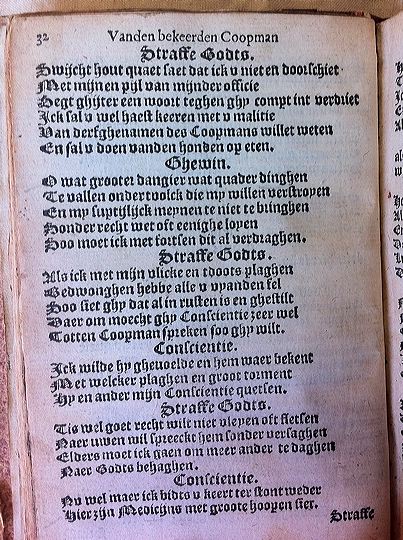 32 Vanden bekeerden Coopman
Straffe Godts.
Swijcht hout quaet saet dat ick u niet en doorschiet
Met mijnen pijl van mijnder officie
Segt ghijter een woort teghen ghy compt int verdriet
Ick sal u wel haest keeren met u malitie
Van derfghenamen des Coopmans willet weten
En sal u doen vanden honden op eten.
Ghewin.
O wat grooter dangier wat quader dinghen
Te vallen onder tvolck die my willen verstroyen
En my suptijlijck meynen te niet te bringhen
Sonder recht wet oft eenighe loyen
Soo moet ick met fortsen dit al verdraghen.
Straffe Godts.
Als ick met mijn vlicke en tdoots plaghen
Gedwonghen hebbe alle u vyanden fel
Soo siet ghy dat al in rusten is en ghestilt
Daer om moecht ghy Conscientie zeer wel
Totten Coopman spreken soo ghy wilt.
Conscientie.
Ick wilde hy ghevoelde en hem waer bekent
Met welcker plaghen en groot torment
Hy en ander mijn Conscientie quetsen.
Straffe Godts.
Tis wel goet recht wilt niet vleyen oft fletsen
Naer uwen wil spreeckt hem sonder versaghen
Elders moet ick gaen om meer ander te daghen
Naer Godts behaghen.
Conscientie.
Nu wel maer ick bidts u keert ter stont weder
Hier zijn Medicijns met groote hoopen sier.
Straffe